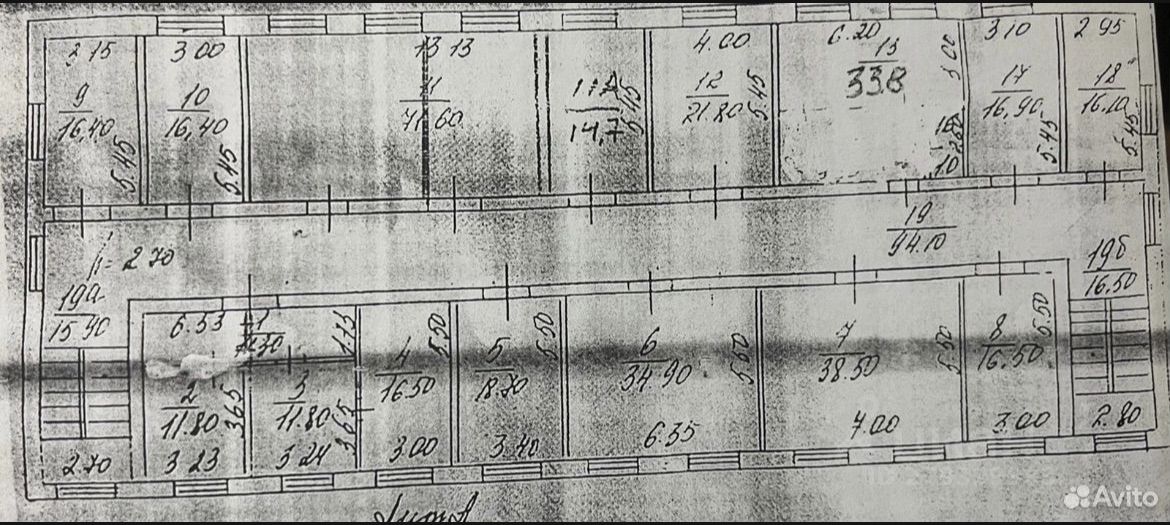 3 15
9
16,40
5.45
3 00
10
16,40
5.45
13 13
11
71.60
14,7
5.45
4.00
12
21.80
5.45
6.20
13
33.8
3 10
17
16,90
5.45
2 95
18
16.10
5.45
h= 2 70
19
94.10
19а
15 90
19б
16.50
6.53
1
1.75
2
11.80
3.65
3 23
3
11.80
3.65
3 24
4
16.50
5.50
3.00
5
18.70
5.50
3.40
6
34.90
5.50
6.35
7
38.50
5.50
7.00
8
16.50
5.50
3.00
2.70
2.80
Avito